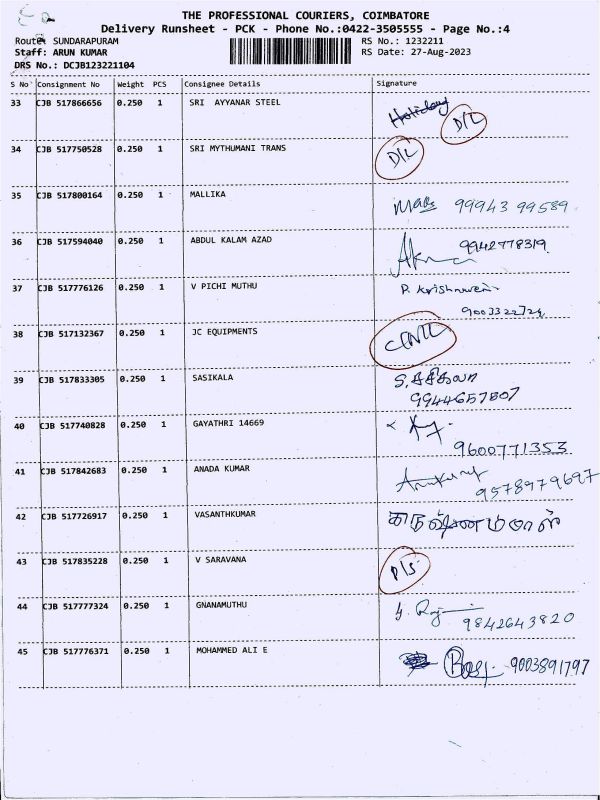 THE PROFESSIONAL COURIERS, COIMBATORE
Delivery Runsheet - PCK - Phone No.:0422-3505555 - Page No.:4
Route: SUNDARAPURAM RS No.: 1232211
Staff: ARUN KUMAR RS Date: 27-Aug-2023
DRS No.: DCJB123221104
S No Consignment No Weight PCS Consignee Details Signature
33 CJB 517866656 0.250 1 SRI AYYANAR STEEL Holiday D/L
34 CJB 517750528 0.250 1 SRI MYTHUMANI TRANS D/L
35 CJB 517800164 0.250 1 MALLIKA 99943 99589
36 CJB 517594040 0.250 1 ABDUL KALAM AZAD 9942778319
37 CJB 517776126 0.250 1 V PICHI MUTHU P. Krishnaveni
9003322724
38 CJB 517132367 0.250 1 JC EQUIPMENTS
39 CJB 517833305 0.250 1 SASIKALA S. சசிகலா
9944657807
40 CJB 517740828 0.250 1 GAYATHRI 14669
9600771353
41 CJB 517842683 0.250 1 ANADA KUMAR
9578979697
42 CJB 517726917 0.250 1 VASANTHKUMAR
43 CJB 517835228 0.250 1 V SARAVANA P/S
44 CJB 517777324 0.250 1 GNANAMUTHU
9842643820
45 CJB 517776371 0.250 1 MOHAMMED ALI E 9003891797